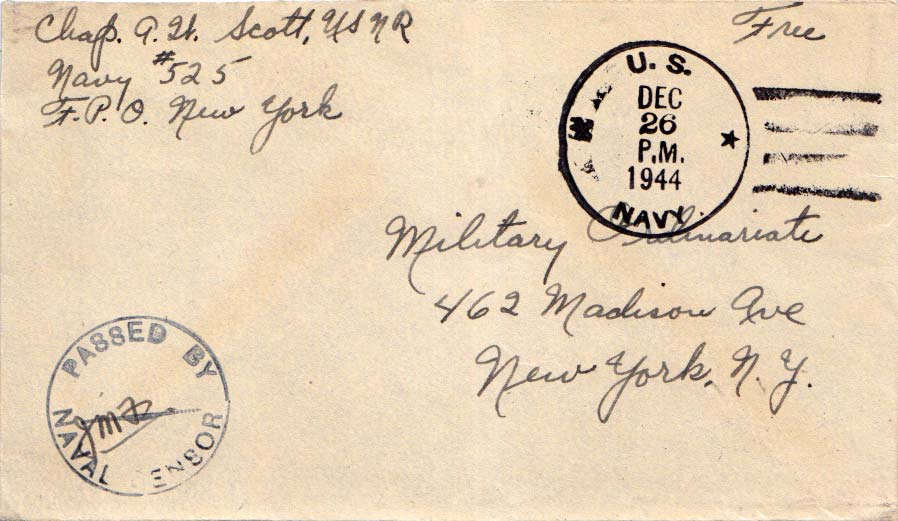 Chap. A. H. Scott, USNR
Navy #525
F.P.O. New York
Free
U. S.
DEC
26
P.M.
1944
NAVY.
Military Ordinariate
462 Madison Ave
New York, N. Y.
PASSED BY
NAVAL ENSOR